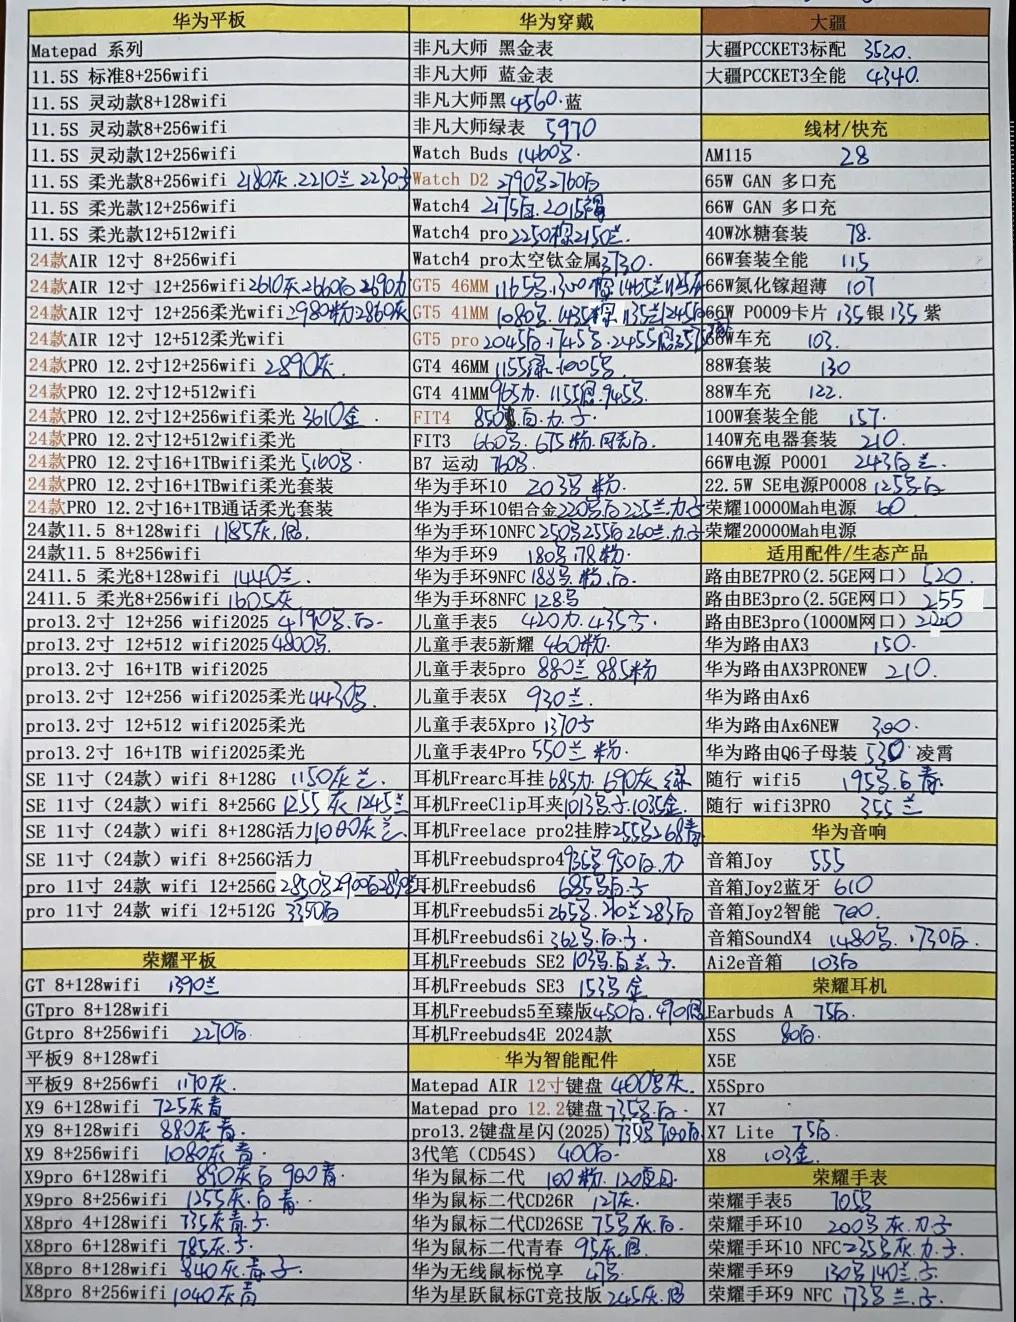 华为平板
Matepad 系列
11.5S 标准8+256wifi
11.5S 灵动款8+128wifi
11.5S 灵动款8+256wifi
11.5S 灵动款12+256wifi
11.5S 柔光款8+256wifi 2180灰.2210兰 2230
11.5S 柔光款12+256wifi
11.5S 柔光款12+512wifi
24款AIR 12寸 8+256wifi
24款AIR 12寸 12+256wifi 2610灰 2660白 2690
24款AIR 12寸 12+256柔光wifi 2980粉 2860灰
24款AIR 12寸 12+512柔光wifi
24款PRO 12.2寸12+256wifi 2890灰.
24款PRO 12.2寸12+512wifi
24款PRO 12.2寸12+256wifi柔光 3610金.
24款PRO 12.2寸12+512wifi柔光
24款PRO 12.2寸16+1TBwifi柔光 5160
24款PRO 12.2寸16+1TBwifi柔光套装
24款PRO 12.2寸16+1TB通话柔光套装
24款11.5 8+128wifi 1185灰.
24款11.5 8+256wifi
2411.5 柔光8+128wifi 1440兰.
2411.5 柔光8+256wifi 1605灰
pro13.2寸 12+256 wifi2025 4190
pro13.2寸 12+512 wifi2025 4800
pro13.2寸 16+1TB wifi2025
pro13.2寸 12+256 wifi2025柔光 4430
pro13.2寸 12+512 wifi2025柔光
pro13.2寸 16+1TB wifi2025柔光
SE 11寸（24款）wifi 8+128G 1150灰兰.
SE 11寸（24款）wifi 8+256G 1255灰 1245兰
SE 11寸（24款）wifi 8+128G活力 1080灰兰.
SE 11寸（24款）wifi 8+256G活力
pro 11寸 24款 wifi 12+256G 2850
pro 11寸 24款 wifi 12+512G 3350白
荣耀平板
GT 8+128wifi 1390兰
GTpro 8+128wifi
Gtpro 8+256wifi 2270白.
平板9 8+128wfi
平板9 8+256wfi 1170灰.
X9 6+128wifi 725灰青
X9 8+128wifi 880灰青.
X9 8+256wifi 1080灰青
X9pro 6+128wifi 890灰白 900青
X9pro 8+256wifi 1255灰.白青.
X8pro 4+128wifi 735灰青.
X8pro 6+128wifi 785灰.
X8pro 8+128wifi 840灰.青.
X8pro 8+256wifi 1040灰青
华为穿戴
非凡大师 黑金表
非凡大师 蓝金表
非凡大师黑 4560.蓝
非凡大师绿表 5970
Watch Buds 1460
Watch D2 2790 2760白
Watch4 2175白.2015
Watch4 pro 2250棕2150兰.
Watch4 pro太空钛金属 3730.
GT5 46MM 1165 1300棕 1465兰
GT5 41MM 1080
GT5 pro 2045白.1745 2455
GT4 46MM 1155绿.1005
GT4 41MM 965 1155 945
FIT4 850
FIT3 660 675粉.
B7 运动 760
华为手环10 203 粉.
华为手环10铝合金 220 白 225兰
华为手环10NFC 250 255白 260兰
华为手环9 180 178粉.
华为手环9NFC 188 粉.白.
华为手环8NFC 128
儿童手表5 420 435
儿童手表5新耀 460粉.
儿童手表5pro 880兰 885粉
儿童手表5X 930兰.
儿童手表5Xpro 1370
儿童手表4Pro 550兰 粉.
耳机Frearc耳挂 685 690灰 绿
耳机FreeClip耳夹 1013 1035金.
耳机Freelace pro2挂脖 255 268青
耳机Freebudspro4 935 950白
耳机Freebuds6 685 白.
耳机Freebuds5i 265 兰 283白
耳机Freebuds6i 362 白.
耳机Freebuds SE2 103 白兰.
耳机Freebuds SE3 153 金
耳机Freebuds5至臻版 450白.490
耳机Freebuds4E 2024款
华为智能配件
Matepad AIR 12寸键盘 400 灰.
Matepad pro 12.2键盘 735 白.
pro13.2键盘星闪(2025) 735 700白
3代笔（CD54S） 400白.
华为鼠标二代 100粉. 120
华为鼠标二代CD26R 127灰.
华为鼠标二代CD26SE 75 灰.白.
华为鼠标二代青春 95灰.
华为无线鼠标悦享 47
华为星跃鼠标GT竞技版 245灰.
大疆
大疆PCCKET3标配 3520.
大疆PCCKET3全能 4340.
线材/快充
AM115 28
65W GAN 多口充
66W GAN 多口充
40W冰糖套装 78.
66W套装全能 115
66W氮化镓超薄 107
66W P0009卡片 135银 135 紫
66W车充 103.
88W套装 130
88W车充 122.
100W套装全能 157.
140W充电器套装 210.
66W电源 P0001 243白兰.
22.5W SE电源P0008 125 白
荣耀10000Mah电源 60.
荣耀20000Mah电源
适用配件/生态产品
路由BE7PRO(2.5GE网口) 520.
路由BE3pro(2.5GE网口) 255
路由BE3pro(1000M网口)
华为路由AX3 150.
华为路由AX3PRONEW 210.
华为路由Ax6
华为路由Ax6NEW 300.
华为路由Q6子母装 530 凌霄
随行 wifi5 195 青.
随行 wifi3PRO 355兰
华为音响
音箱Joy 555
音箱Joy2蓝牙 610
音箱Joy2智能 700.
音箱SoundX4 1480 1730白.
Ai2e音箱 103白
荣耀耳机
Earbuds A 75白.
X5S 80白.
X5E
X5Spro
X7
X7 Lite 75白
X8 103金.
荣耀手表
荣耀手表5 705
荣耀手环10 200 灰.
荣耀手环10 NFC 235 灰.
荣耀手环9 130 140兰.
荣耀手环9 NFC 173 兰.